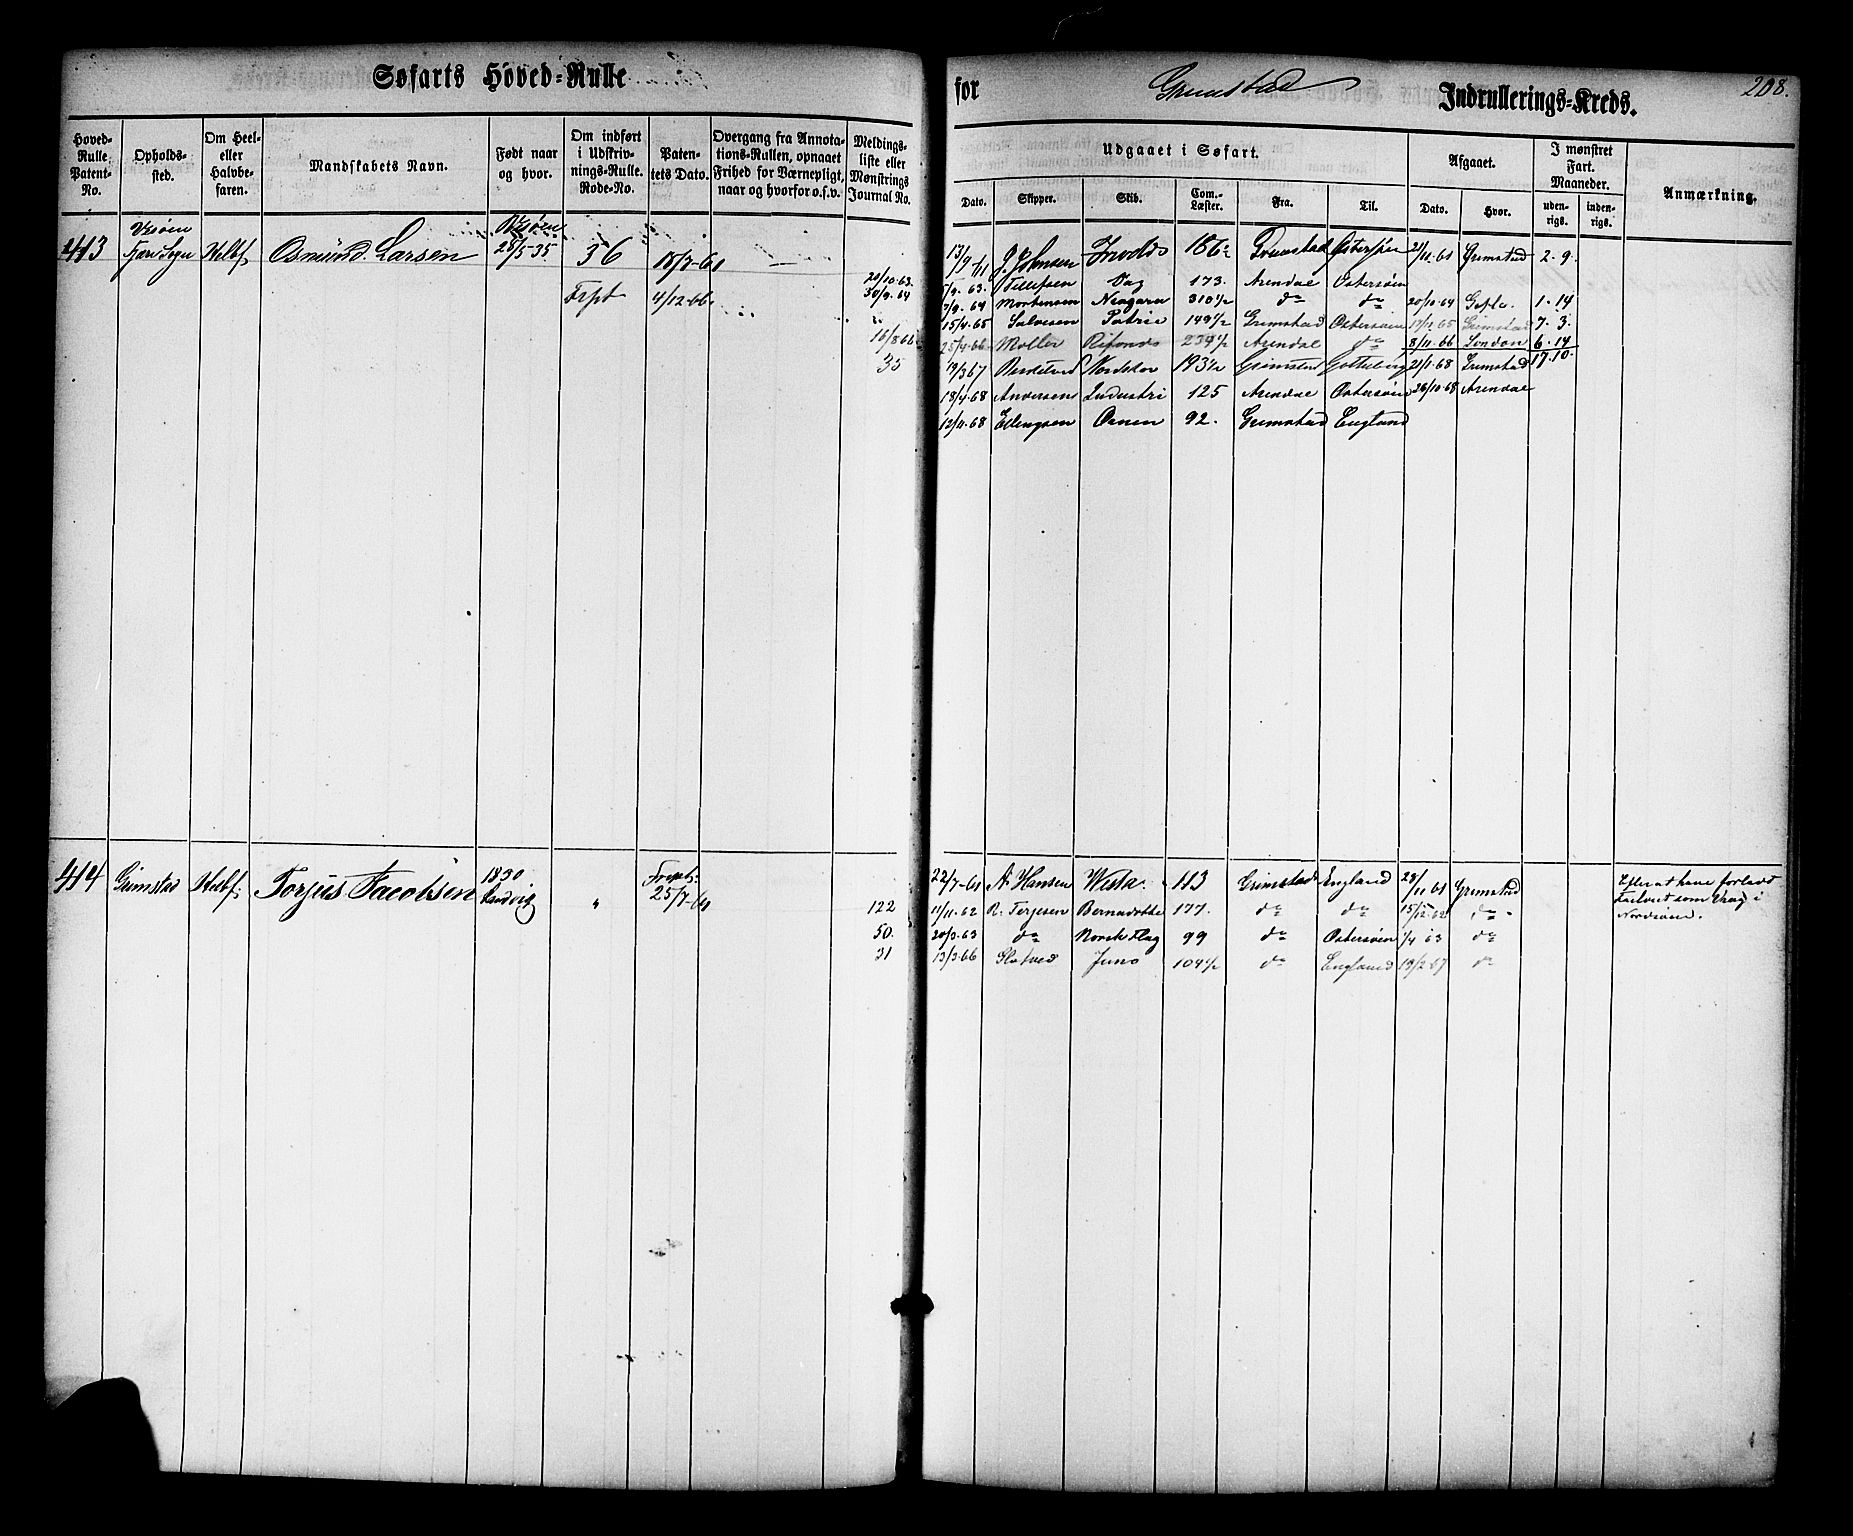 Søfarts Hoved-Rulle
for Grimstad Indrullerings-Kreds. 208.
Hoved-Rulle Patent-No.
Opholds-sted.
Om Heel- eller Halvbe-faren.
Mandskabets Navn.
Født naar og hvor.
Om indført i Udskriv-nings-Rulle. Rode-No.
Paten-tets Dato.
Overgang fra Annota-tions-Rullen, opnaaet Frihed for Værnepligt, naar og hvorfor o.s.v.
Meldings-liste eller Mønstrings Journal No.
Udgaaet i Søfart.
Dato. Skipper. Skib. Com.-Læster. Fra. Til.
Afgaaet.
Dato. Hvor.
I mønstret Fart. Maaneder.
uden-rigs. inden-rigs.
Anmærkning.
413 Vesøen Fjære Sogn Helbf. Osmund Larsen Vesøen 28/5-35 36 18/7-61 —
Frpt 4/12-66
20/10-63.
30/9-64
16/8 66
35
13/9-61 J. Johnsen 186 Grimstad Østersøen 21/11-61 Grimstad 2-9
Tellefsen Dag 173. Arendal Østersøen
7/9-64 Mortensen Niagara 310 1/2 do do 20/10-64 Gefle. 1-14
15/4-65 Salvesen Patric 149 1/2 Grimstad Østersøen 17/11-65 Grimstad 7-3.
25/4-66 Møller 239 1/2 Arendal do 8/11-66 London 6-14
19/3 67 Nordskov 193 1/2 Grimstad Gotteborg 21/1-68 Grimstad 17-10.
18/4-68 Andersen Industri 125 Arendal Østersøen 26/10-68 Arendal
12/11-68 Ellingsen Ørnen 92. Grimstad England
414 Grimstad Helbf. Torjus Jacobsen 1830 Sandvig " Frpt: 25/7-61
122
50.
31
22/7-61 A. Hansen Vesta. 113 Grimstad England 28/11 61 Grimstad
11/11-62 R. Terjesen Bernadotte 177. do do 15/12-62 do
20/3-63 do Norsk Flag 99 do Østersøen 1/4 63 do
13/3-66 Juno 104 1/2 do England 19/2 67 do
Efter at have forladt
Fartøiet som Vrag i
Nordsøen.